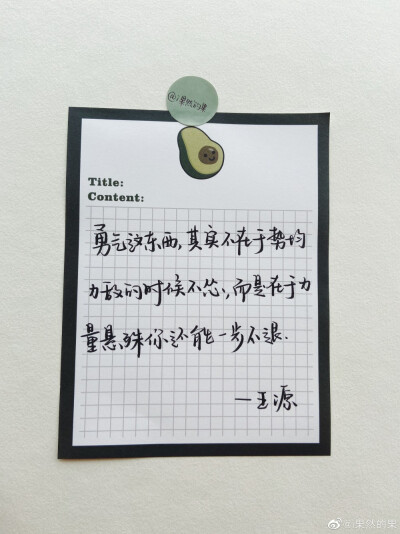 @果然的果
Title:
Content:
勇气这东西,其实不在于势均
力敌的时候不怂,而是在于力
量悬殊你还能一步不退.
—王源
@果然的果